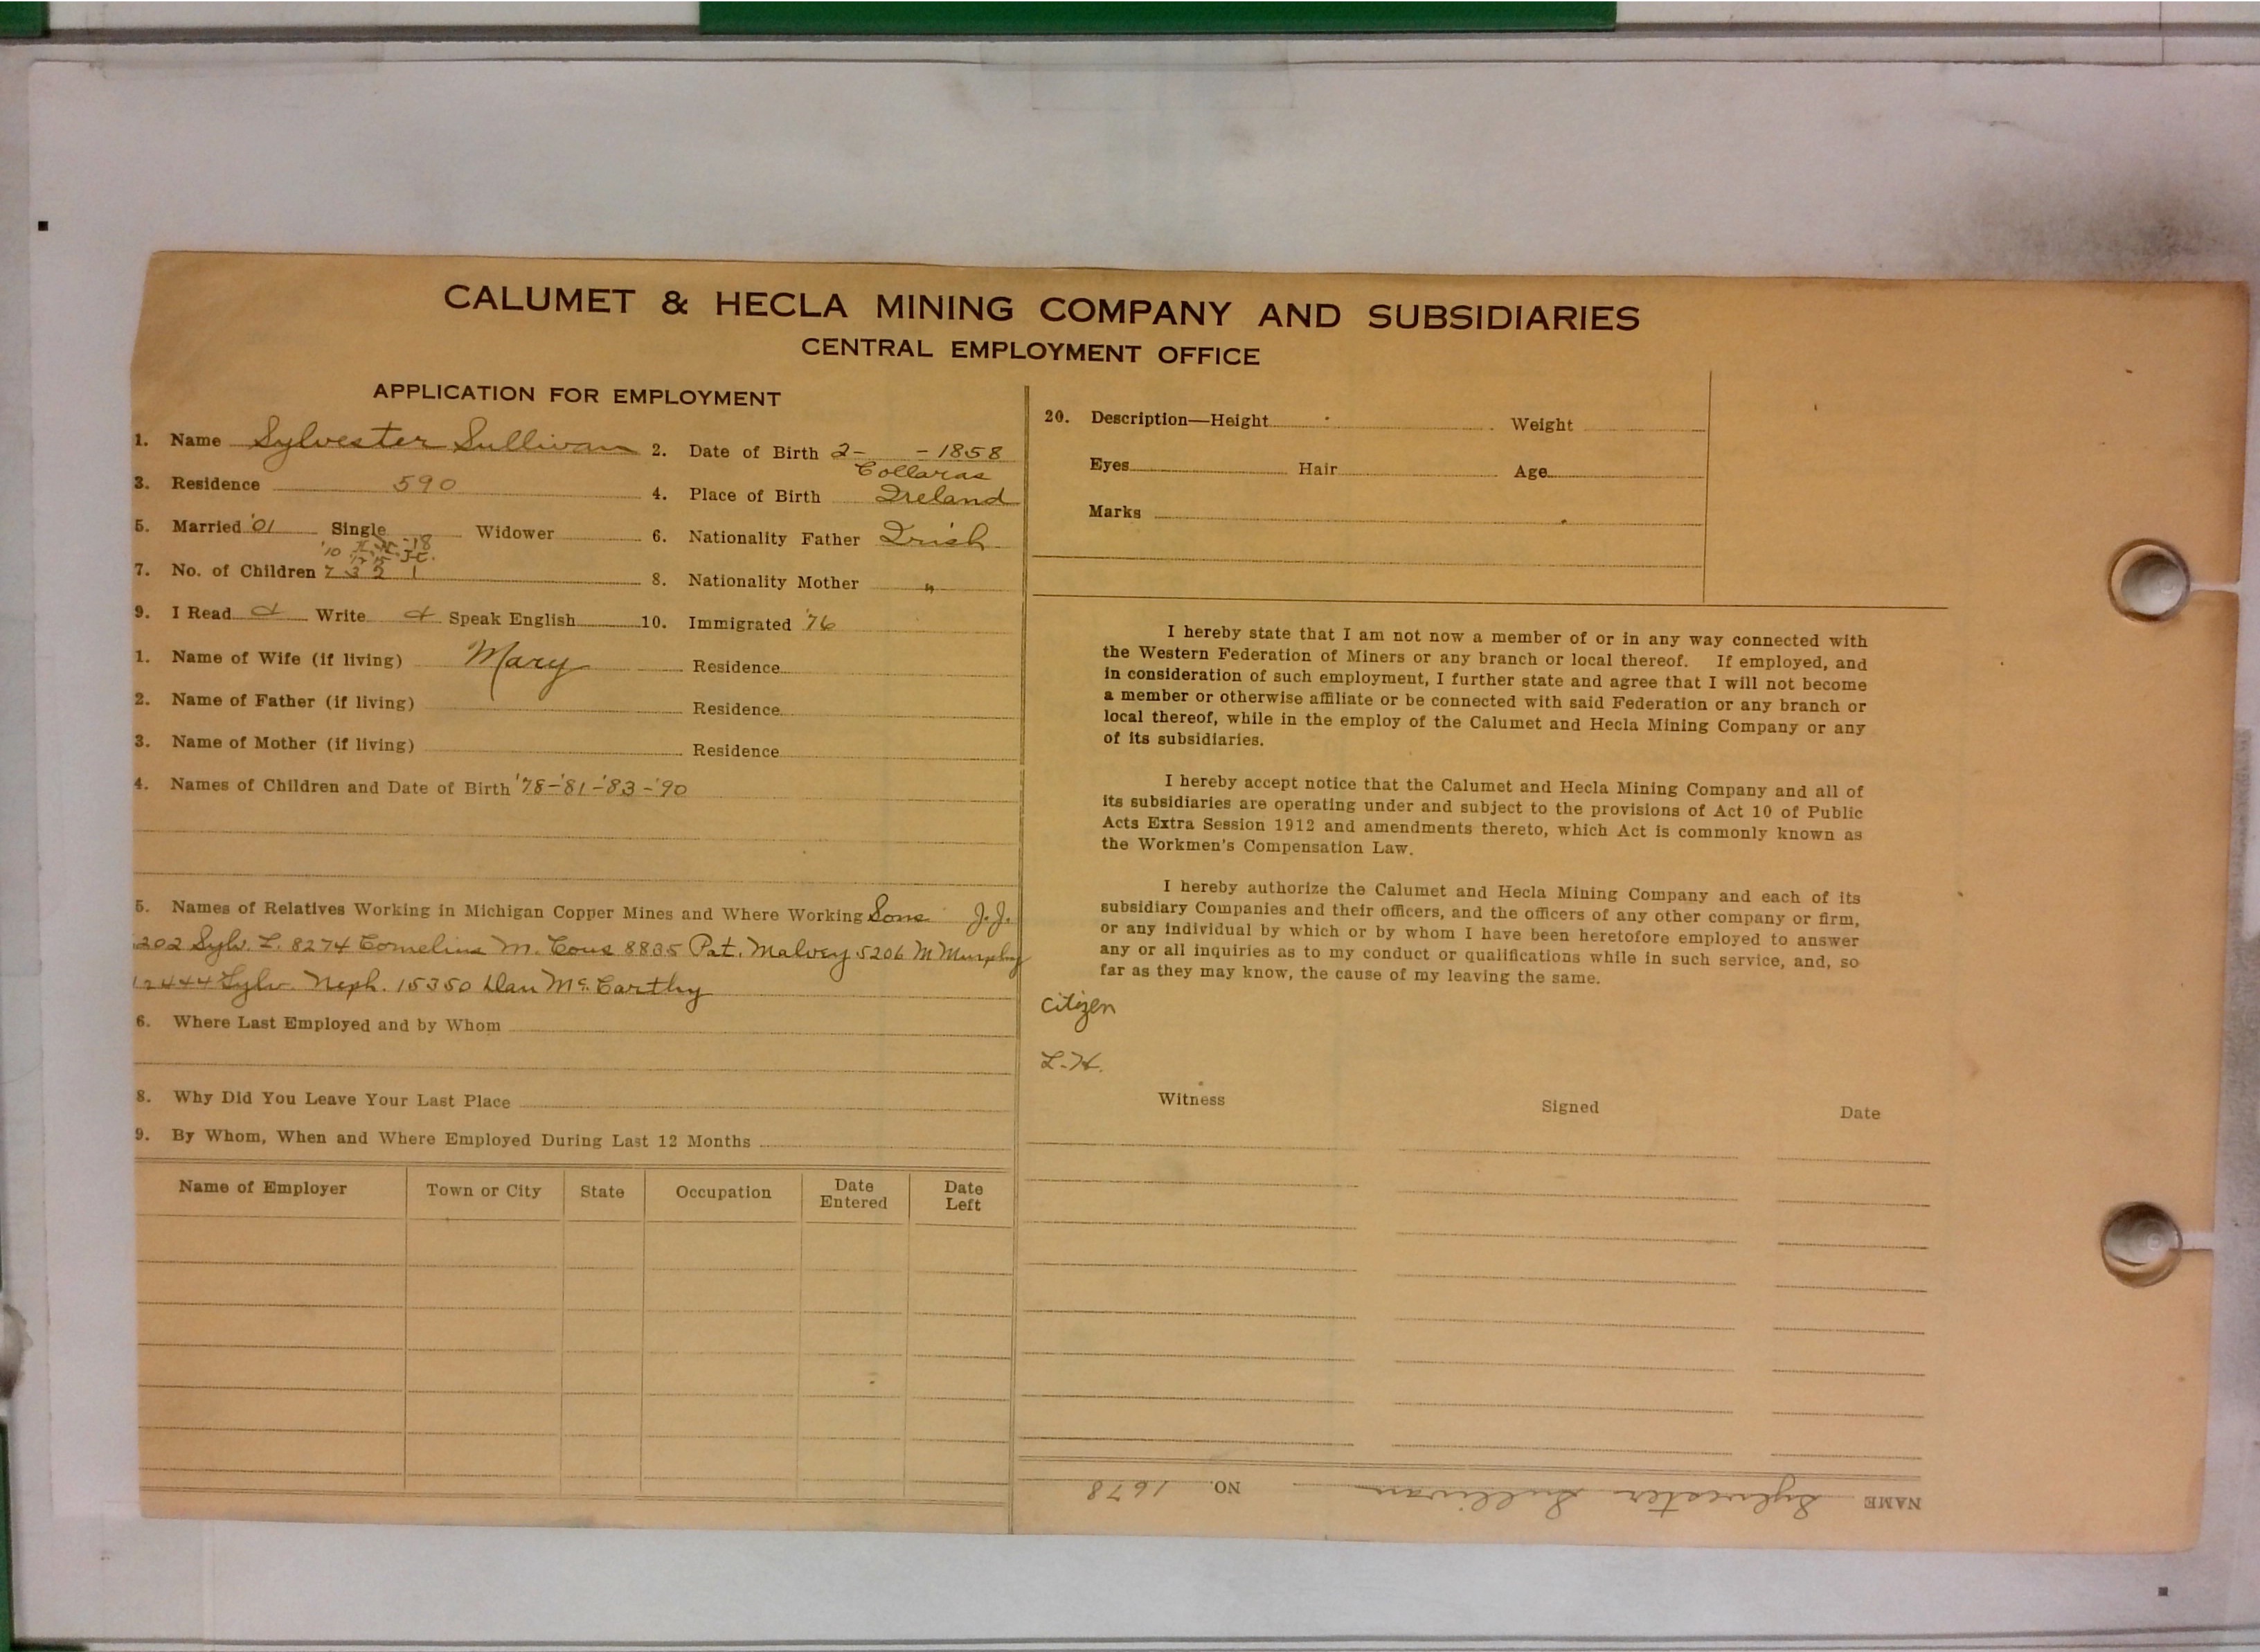 CALUMET & HECLA MINING COMPANY AND SUBSIDIARIES
CENTRAL EMPLOYMENT OFFICE
APPLICATION FOR EMPLOYMENT
1. Name Sylvester Sullivan 2. Date of Birth 2- - 1858
Collaras
3. Residence 590 4. Place of Birth Ireland
5. Married '01 Single Widower 6. Nationality Father Irish
'10 -18
J.C.
7. No. of Children 7 3 2 1 8. Nationality Mother "
9. I Read Write Speak English 10. Immigrated '76
1. Name of Wife (if living) Mary Residence
2. Name of Father (if living) Residence
3. Name of Mother (if living) Residence
4. Names of Children and Date of Birth '78-'81-'83-'90
5. Names of Relatives Working in Michigan Copper Mines and Where Working Sons J.J.
202 Sylv. L. 8274 Cornelius M. Cous 8835 Pat. Malvey 5206 M Murphy
12444 Sylv. Neph. 15350 Dan McCarthy
6. Where Last Employed and by Whom
8. Why Did You Leave Your Last Place
9. By Whom, When and Where Employed During Last 12 Months
Name of Employer Town or City State Occupation Date Entered Date Left
20. Description—Height Weight
Eyes Hair Age
Marks
I hereby state that I am not now a member of or in any way connected with
the Western Federation of Miners or any branch or local thereof. If employed, and
in consideration of such employment, I further state and agree that I will not become
a member or otherwise affiliate or be connected with said Federation or any branch or
local thereof, while in the employ of the Calumet and Hecla Mining Company or any
of its subsidiaries.
I hereby accept notice that the Calumet and Hecla Mining Company and all of
its subsidiaries are operating under and subject to the provisions of Act 10 of Public
Acts Extra Session 1912 and amendments thereto, which Act is commonly known as
the Workmen's Compensation Law.
I hereby authorize the Calumet and Hecla Mining Company and each of its
subsidiary Companies and their officers, and the officers of any other company or firm,
or any individual by which or by whom I have been heretofore employed to answer
any or all inquiries as to my conduct or qualifications while in such service, and, so
far as they may know, the cause of my leaving the same.
Citizen
L.H.
Witness Signed Date
NAME Sylvester Sullivan NO. 1678